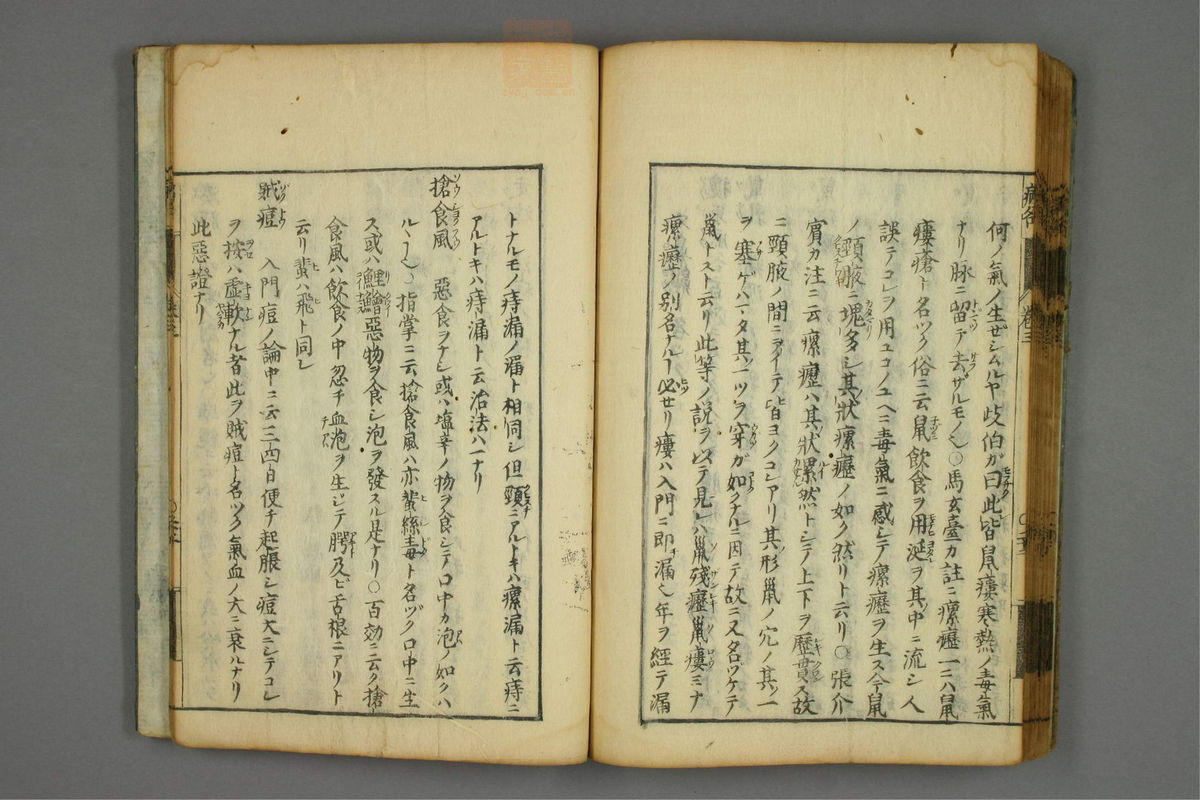 何ノ氣ノ生ゼシムルヤ岐伯ガ曰此皆鼠瘻寒熱ノ毒氣
ナリ脉ニ留テ去サルモノ也○馬玄臺カ註ニ瘰癧一ニハ鼠
瘻瘡ト名ツク俗ニ云鼠飲食ヲ用涎ヲ其中ニ流シ人
誤テコレヲ用ユコノユヘニ毒氣ニ感シテ瘰癧ヲ生ス今鼠
ノ頸腋ニ塊多シ其狀瘰癧ノ如ク然リト云リ○張介
賓カ注ニ云瘰癧ハ其狀累然トシテ上下ヲ歷貫ス故
ニ頸腋ノ間ニヲイテ皆ヨクコレアリ其形巢ノ穴ノ其一
ヲ塞ゲハマタ其一ツヲ穿カ如クナルニ因テ故ニ又名ツケテ
鼠トスト云リ此等ノ説ヲ以テ見レハ鼠殘癧鼠瘻ミナ
瘰癧ノ別名ナルヿ必セリ瘻ハ入門ニ即漏也年ヲ經テ漏
トナルモノ痔漏ノ漏ト相同シ但頸ニアルトキハ瘰漏ト云痔ニ
アルトキハ痔漏ト云治法ハ一ナリ
搶食風 惡食ヲナシ或ハ塩辛ノ物ヲ食シテ口中カ泡ノ如クハ
ルヽ也○指掌ニ云搶食風ハ亦蜚絲毒ト名ヅク口中ニ生
ス或ハ鯉鱠惡物ヲ食シ泡ヲ發スル是ナリ○百効ニ云ク搶
食風ハ飲食ノ中忽チ血泡ヲ生ジテ腭及ビ舌根ニアリト
云リ蜚ハ飛ト同シ
賊痘 入門痘ノ論中ニ云三四日便チ起脹シ痘大ニシテコレ
ヲ按ハ虚軟ナル者此ヲ賊痘ト名ツク氣血ノ大ニ衰ルナリ
此惡證ナリ